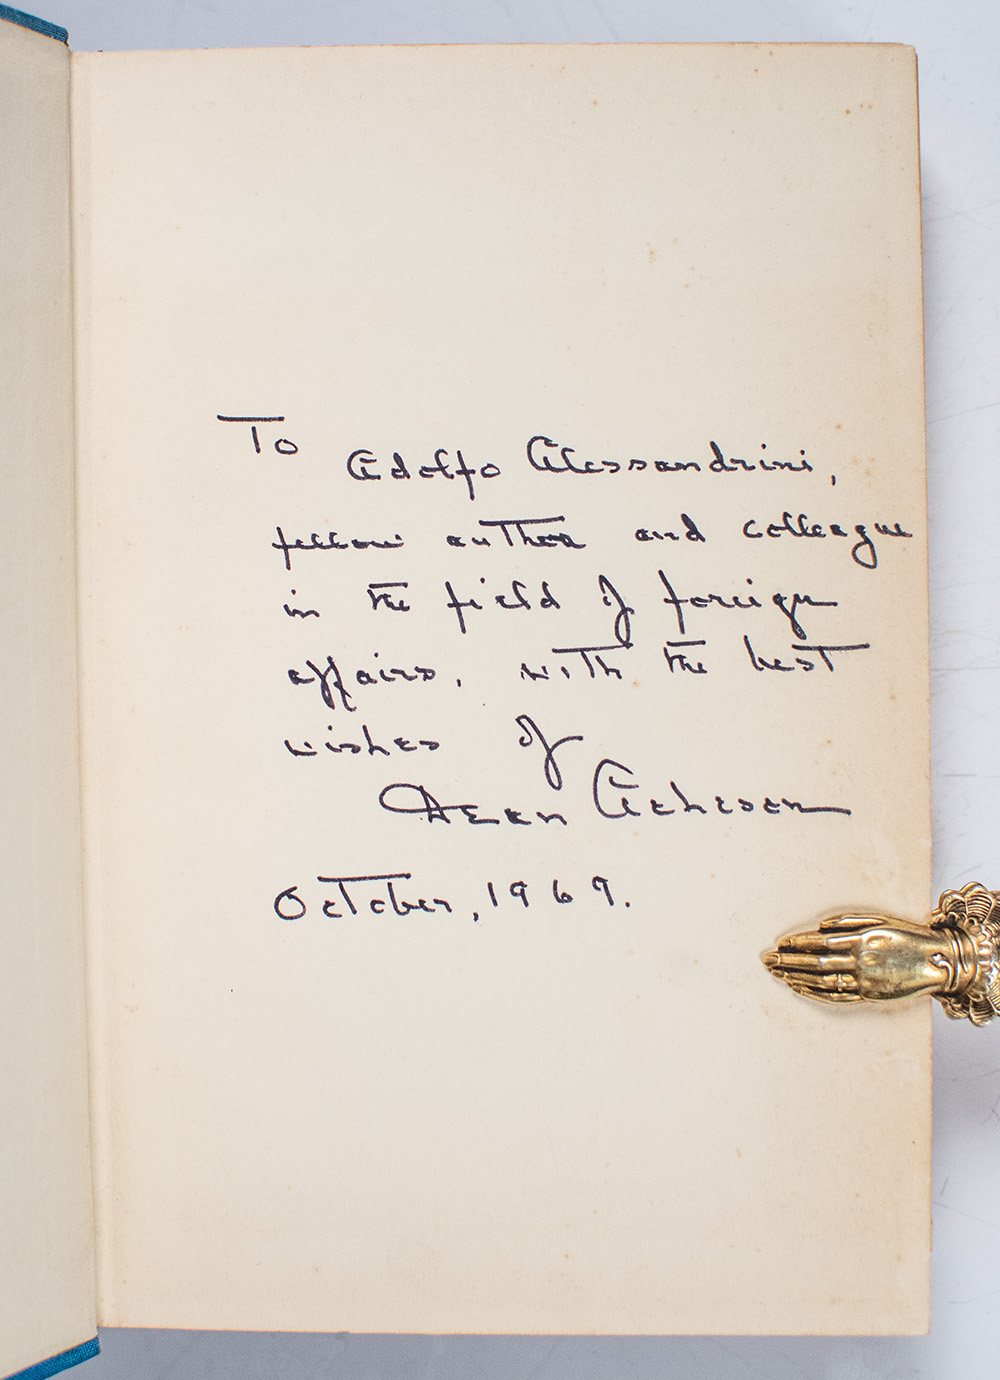 To Adolfo Alessandrini,
fellow author and colleague
in the field of foreign
affairs, with the best
wishes of
Dean Acheson
October, 1969.